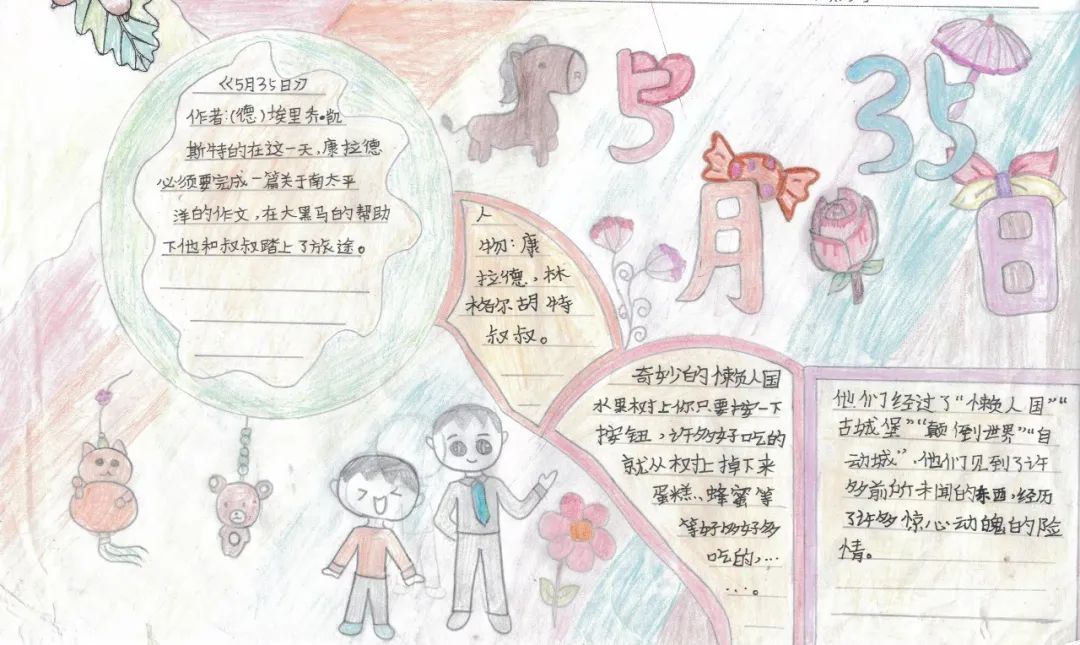 《5月35日》
作者:(德)埃里希•凯
斯特的在这一天,康拉德
必须要完成一篇关于南太平
洋的作文,在大黑马的帮助
下他和叔叔踏上了旅途。
5月35日
人
物:康
拉德,林
格尔胡特
叔叔。
奇妙的懒人国
水果树上你只要按一下
按钮,许多好吃的
就从树上掉下来
蛋糕、蜂蜜等
等好多好多
吃的,…
…。
他们经过了“懒人国”“
古城堡”“颠倒世界”“自
动城”,他们见到了许
多前所未闻的东西,经历
了许多惊心动魄的险
情。